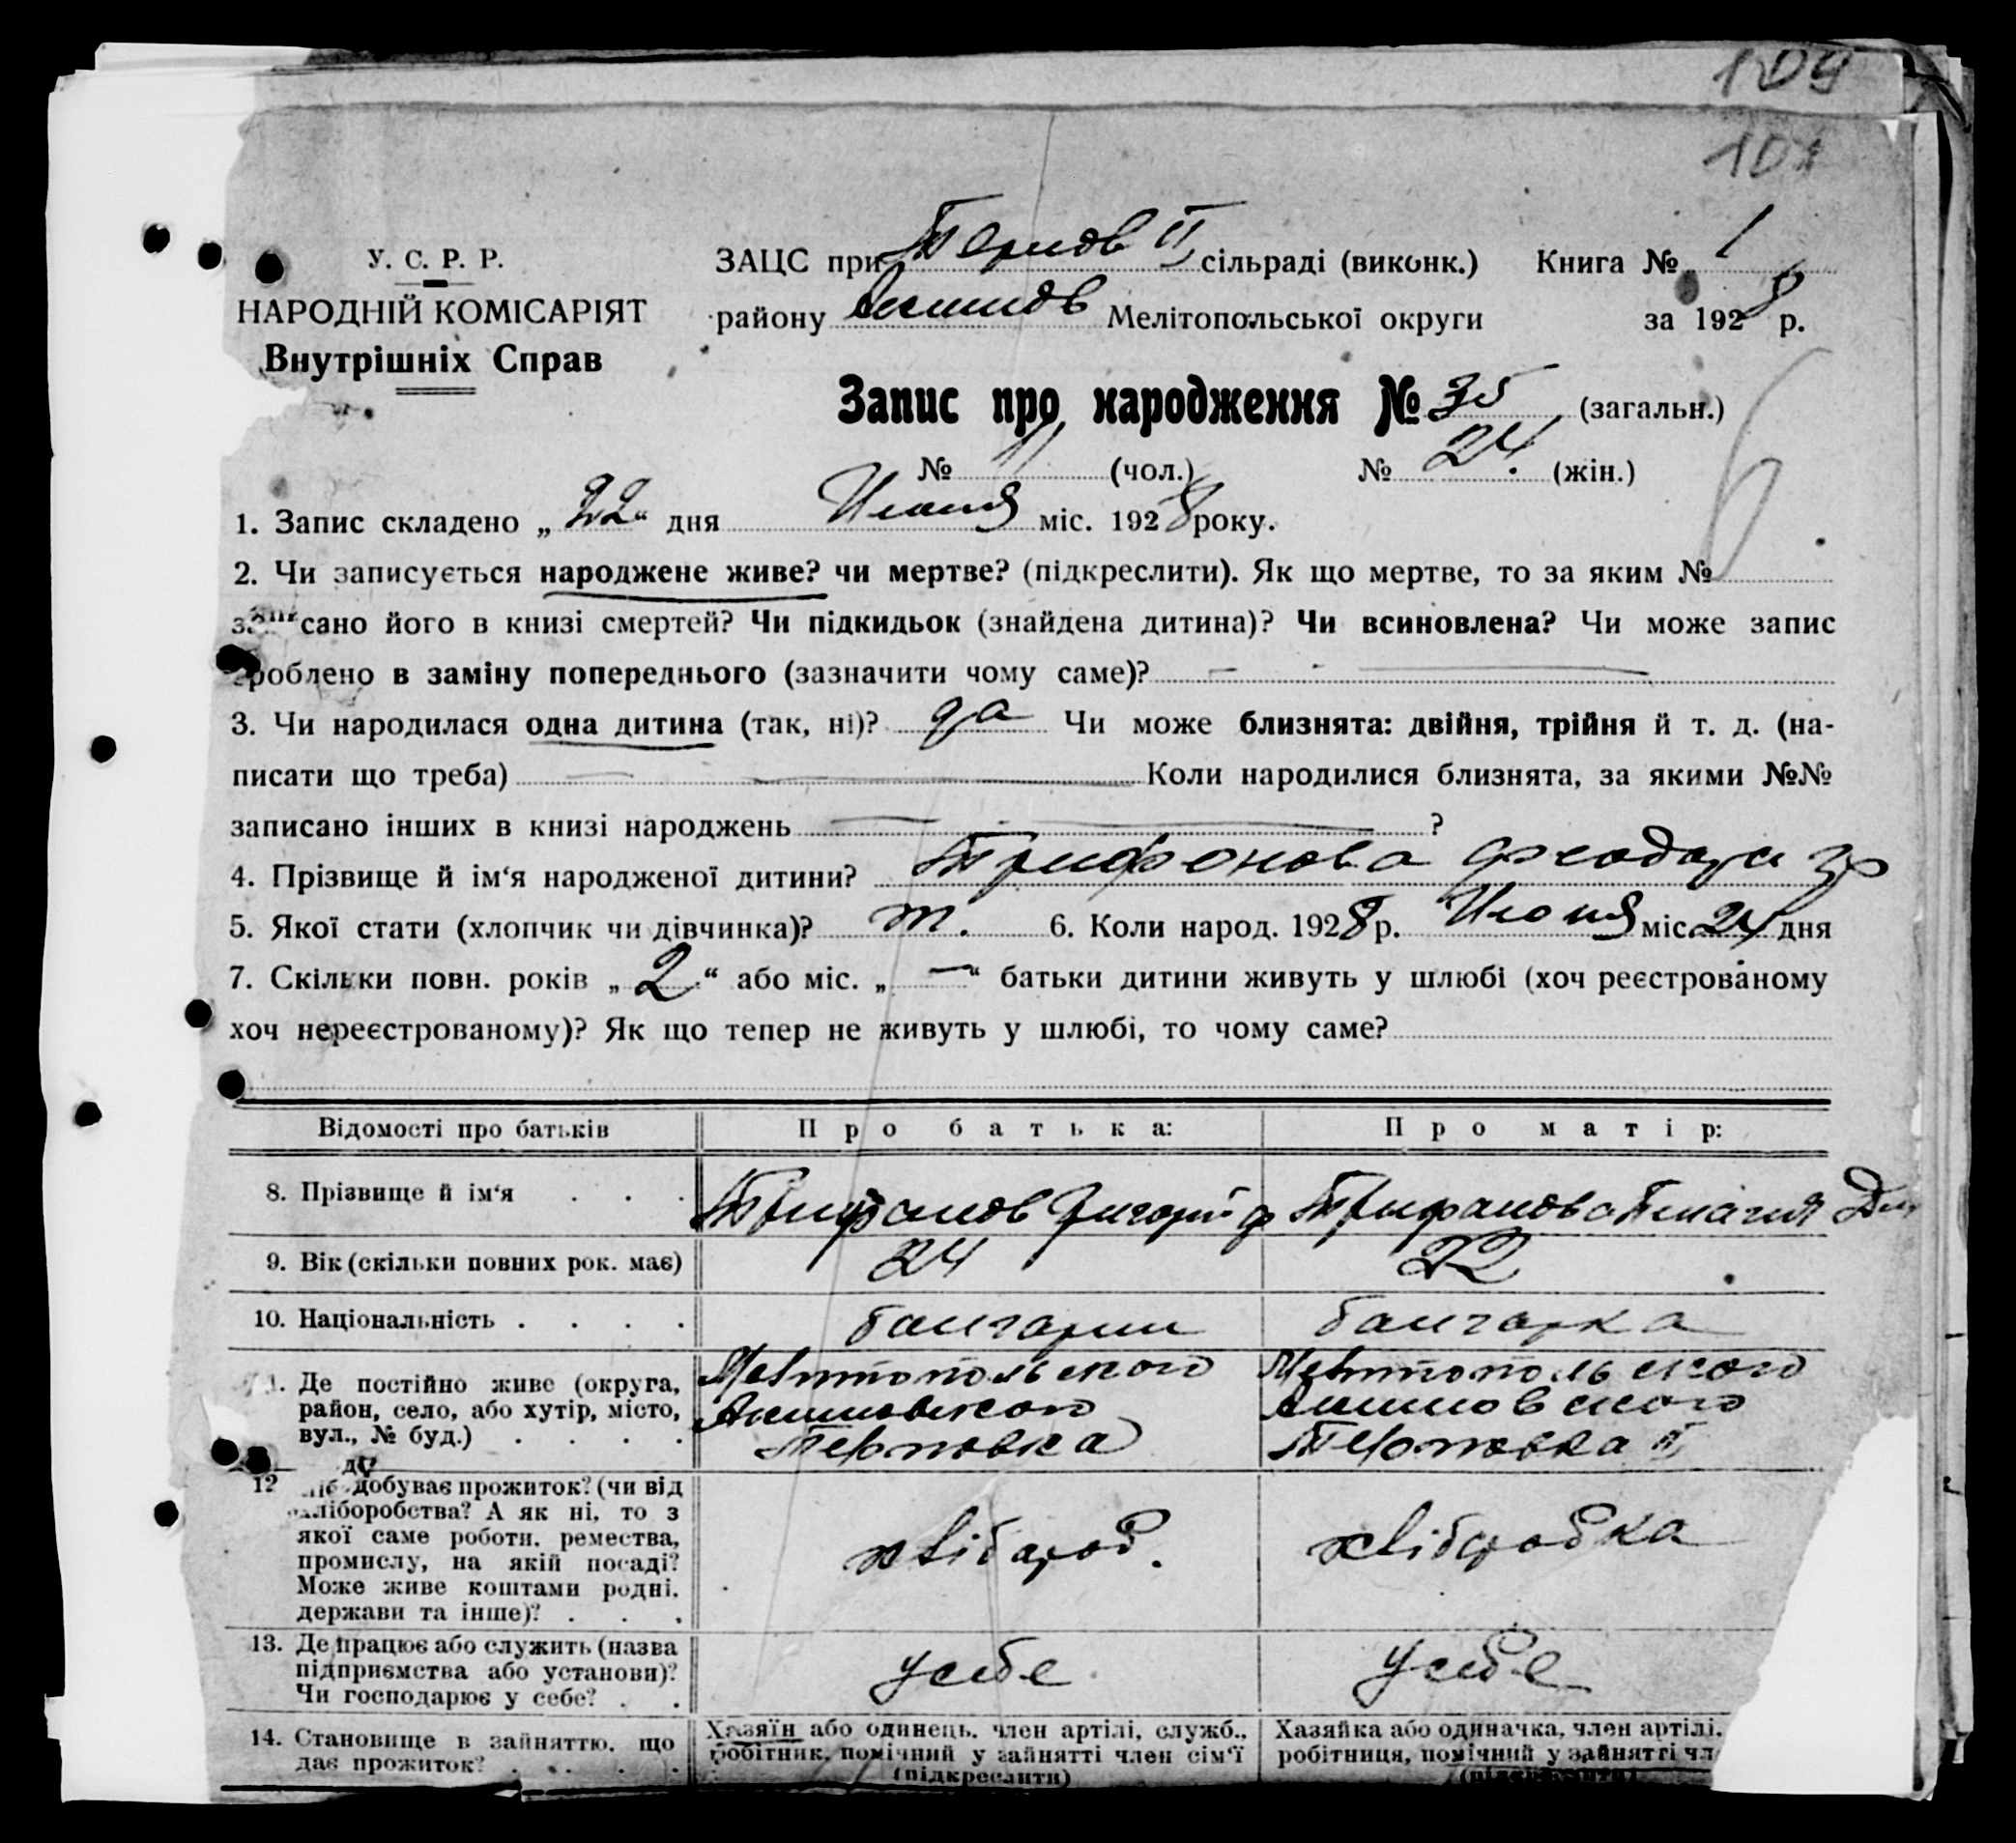 109
101
У. С. Р. Р.
НАРОДНІЙ КОМІСАРІЯТ
Внутрішніх Справ
ЗАЦС при Тернов II сільраді (виконк.) Книга № 1
району Акимов Мелітопольської округи за 1928 р.
Запис про народження № 35 (загальн.)
№ 11 (чол.) № 24. (жін.)
1. Запис складено „22“ дня Июня міс. 1928 року.
2. Чи записується народжене живе? чи мертве? (підкреслити). Як що мертве, то за яким №
записано його в книзі смертей? Чи підкидьок (знайдена дитина)? Чи всиновлена? Чи може запис
зроблено в заміну попереднього (зазначити чому саме)? —
3. Чи народилася одна дитина (так, ні)? да Чи може близнята: двійня, трійня й т. д. (на-
писати що треба) — Коли народилися близнята, за якими №№
записано інших в книзі народжень — ?
4. Прізвище й ім‘я народженої дитини? Трифонова
5. Якої стати (хлопчик чи дівчинка)? 6. Коли народ. 1928 р. Июня міс. 24 дня
7. Скільки повн. років „2“ або міс. „—“ батьки дитини живуть у шлюбі (хоч реєстрованому
хоч нереєстрованому)? Як що тепер не живуть у шлюбі, то чому саме?
Відомості про батьків Про батька: Про матір:
8. Прізвище й ім‘я . . . Трифанов Григорий Ф Трифанова Пелагия
9. Вік (скільки повних рок. має) 24 22
10. Національність . . . . болгарин болгарка
11. Де постійно живе (округа, Мелітопольского Мелітопольского
район, село, або хутір, місто, Акимовского Акимовского
вул., № буд.) . . . . Терновка Терновка II
12 добуває прожиток? (чи від
хліборобства? А як ні, то з
якої саме роботи, ремества, хлібароб. хлібаробка
промислу, на якій посаді?
Може живе коштами родні,
держави та інше)? . . .
13. Де працює або служить (назва
підприємства або установи)? у себе у себе
Чи господарює у себе? . .
14. Становище в зайняттю, що Хазяїн або одинець, член артілі, служб., Хазяйка або одиначка, член артілі,
дає прожиток? . . . . робітник, помічний у зайнятті член сім‘ї робітниця, помічний у зайнятті чл
(підкреслити) (підкреслити)